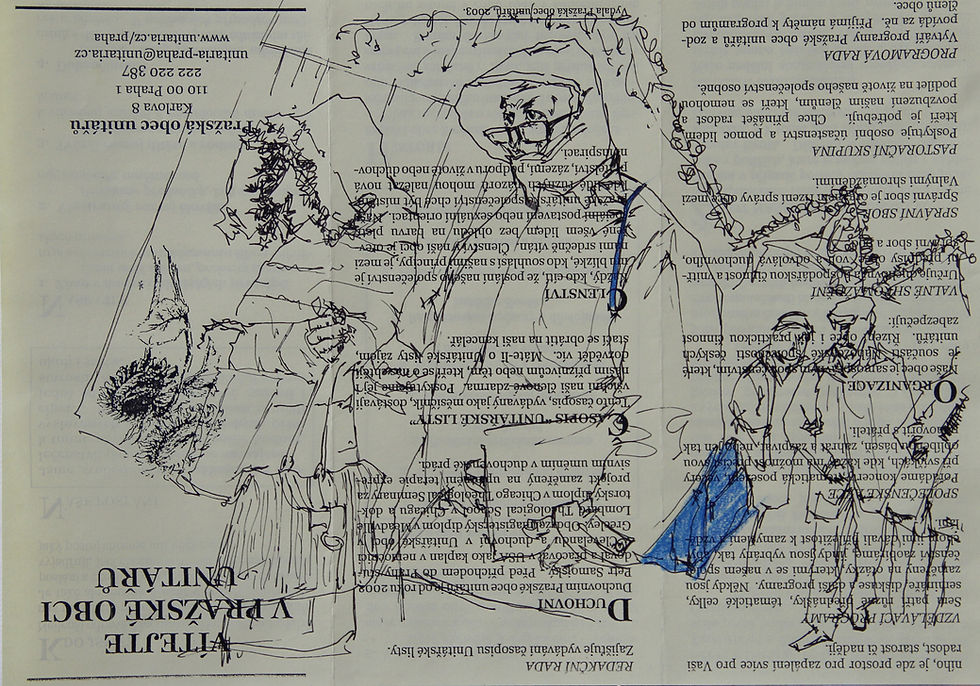 ního, je zde prostor pro zapálení svíce pro Vaši
radost, starost či naději.
VZDĚLÁVACÍ PROGRAMY
Sem patří různé přednášky, tématické celky,
semináře, diskuse a další programy. Někdy jsou
zaměřeny na otázky, kterými se v našem spole-
čenství zaobíráme, jindy jsou vybrány tak, aby
dávali příležitost k zamyšlení a vzdě-
SPOLEČENSKÉ AKCE
Pořádáme koncerty, tematická posezení, večery
při svících, kde každý má možnost přečíst svou
oblíbenou báseň, zahrát a zazpívat, nebo jen tak
hovořit s přáteli.
ORGANIZACE
Naše obec je samosprávným společenstvím, které
je součástí Náboženské společnosti českých
unitářů. Řízení obce i její praktickou činnost
zabezpečují:
VALNÉ SHROMÁŽDĚNÍ
Určuje duchovní a hospodářskou činnost a vnitř-
ní předpisy obce, volí a odvolává duchovního,
správní sbor a
SPRÁVNÍ SBOR
Správní sbor je orgánem řízení správy obce mezi
Valnými shromážděními.
PASTORAČNÍ SKUPINA
Poskytuje osobní účastenství a pomoc lidem,
kteří je potřebují. Chce přinášet radost a
povzbuzení našim členům, kteří se nemohou
podílet na životě našeho společenství osobně.
PROGRAMOVÁ RADA
Vytváří programy Pražské obce unitářů a zod-
povídá za ně. Přijímá náměty k programům od
členů obce.
REDAKČNÍ RADA
Zajišťuje vydávání časopisu Unitářské listy.
DUCHOVNÍ
Duchovním Pražské obce unitářů je od roku 2008
Petr Samojský. Před příchodem do Prahy stu-
doval a pracoval v USA jako kaplan v nemocnici
v Clevelandu a duchovní v Unitářské obci v
Greeley. Obdržel magisterský diplom v Meadville
Lombard Theological School v Chicagu a dok-
torský diplom v Chicago Theological Seminary za
projekt zaměřený na uplatnění terapie expre-
sivním uměním v duchovenské práci.
ČASOPIS "UNITÁŘSKÉ LISTY"
Tento časopis, vydávaný jako měsíčník, dostávají
všichni naši členové zdarma. Poskytujeme jej i
našim příznivcům nebo těm, kteří se o nás chtějí
dozvědět víc. Máte-li o Unitářské listy zájem,
stačí se obrátit na naši kancelář.
ČLENSTVÍ
Každý, kdo cítí, že poslání našeho společenství je
mu blízké, kdo souhlasí s našimi principy, je mezi
námi srdečně vítán. Členství v naší obci je otev-
řené všem lidem bez ohledu na barvu pleti,
sociální postavení nebo sexuální orientaci. Naše
Pražské unitářské společenství chce být místem,
kde lidé různých názorů mohou nalézat nová
přátelství, zázemí, podporu v životě nebo ducho-
vní inspiraci.
Vydala Pražská obec unitářů, 2003.
VÍTEJTE
V PRAŽSKÉ OBCI
UNITÁŘŮ
Pražská obec unitářů
Karlova 8
110 00 Praha 1
222 220 387
unitaria-praha@unitaria.cz
www.unitaria.cz/praha